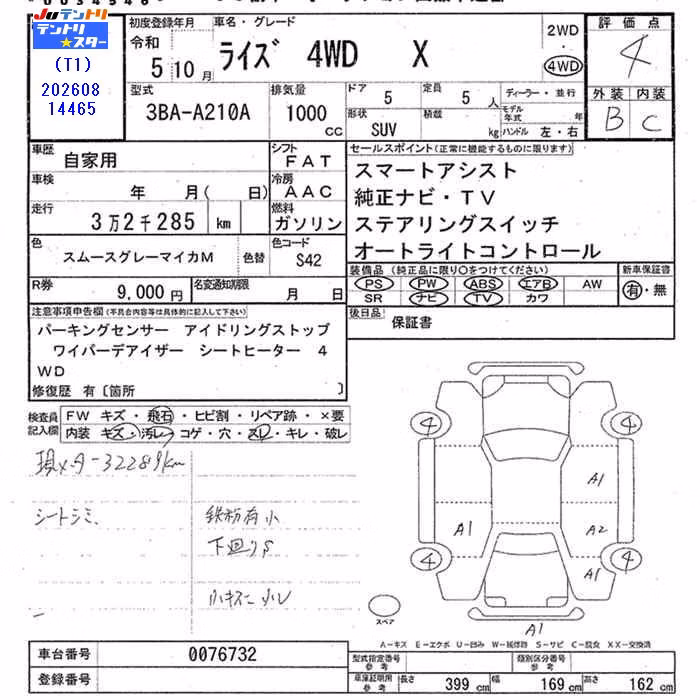 Juテントリ
テントリ★スター
(T1)
202608
14465
初度登録年月
令和
5年10月
車名・グレード
ライズ 4WD X
2WD
・
4WD
評価点
4
外装 内装
B C
型式
3BA-A210A
排気量
1000
CC
ドア
5
定員
5人
形状
SUV
積載
kg
ディーラー・並行
モデル年式 年
ハンドル 左・右
車歴
自家用
シフト
FAT
車検
年 月( 日)
冷房
AAC
走行
3万2千285 km
燃料
ガソリン
色
スムースグレーマイカM
色替
色コード
S42
R券
9,000円
名変通知期限
月 日
セールスポイント(正常に機能するものに限ります)
スマートアシスト
純正ナビ・TV
ステアリングスイッチ
オートライトコントロール
装備品(純正品に限り○をつけてください)
PS PW ABS エアB AW
SR ナビ TV カワ
新車保証書
有・無
後日品
保証書
注意事項申告欄(不具合内容等は具体的に記入して下さい)
パーキングセンサー アイドリングストップ
ワイパーデアイザー シートヒーター 4
WD
修復歴 有〔箇所 〕
検査員記入欄
FW キズ・飛石・ヒビ割・リペア跡・×要
内装 キズ・汚レ・コゲ・穴・スレ・キレ・破レ
現メーター32289km
シートシミ
鉄粉有小
下廻りS
小キズ 小凹
4
4
4
4
A1
A1
A2
A1
A1
スペア
A-キズ E-エクボ U-凹み W-補修跡 S-サビ C-腐食 XX-交換済
車台番号
0076732
登録番号
型式指定番号
参考
類別区分番号
参考
車庫証明用
参考
長さ 399 cm
幅 169 cm
高さ 162 cm